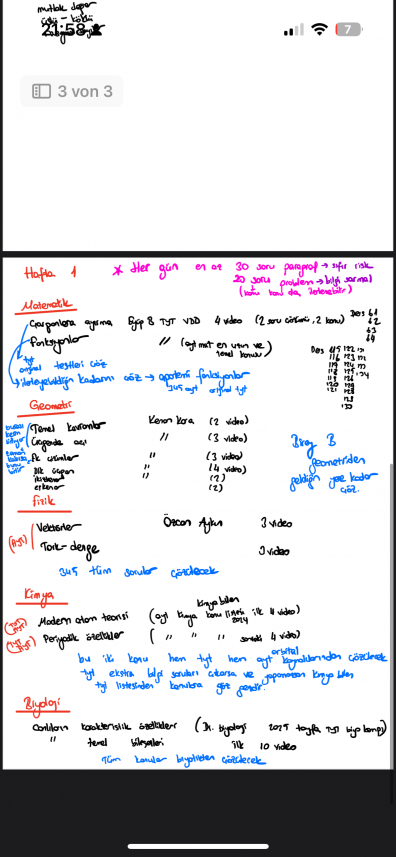 mutlak değer
üslü - köklü
21:58
7
3 von 3
Hafta 1
* Her gün en az 30 soru paragraf → sıfır risk
20 soru problem → bilgi sarmal
(konu konu da ilerlenebilir)
Matematik
Çarpanlara ayırma Eyüp B TYT VDD 4 video (2 soru çözümü, 2 konu)
Ders 61
62
63
64
Fonksiyonlar " (ayt mat en uzun ve temel konusu)
tyt orijinal testleri çöz
→ ilerleyebildiğin kadarını çöz → apotemi fonksiyonlar
345 ayt orijinal tyt
Ders 115 122
116 123
Geometri
Temel kavramlar Kenan Kara (2 video)
Üçgende açı " (3 video)
Ek çizimler " (3 video)
Dik üçgen " (4 video)
ikizkenar " (2)
eşkenar (2)
Birey B
geometriden
geldiğin yere kadar
çöz.
Fizik
(AYT)
Vektörler Özcan Aykın 3 video
Tork-denge 3 video
345 tüm sorular çözülecek
Kimya
(TYT AYT) Modern atom teorisi (ayt kimya konu listesi ilk 4 video)
kimya bilen
2024
(TYT AYT) Periyodik özellikler ( " " " sonraki 4 video)
bu iki konu hem tyt hem ayt kaynaklarından çözülecek
orbital
tyt ekstra bilgi soruları çıkarsa ve yapamazsan kimya bilen
tyt listesinden konulara göz gezdir.
Biyoloji
Canlıların karakteristik özellikleri (Dr. Biyoloji 2025 tayfa TYT biyo kampı)
" temel bileşenleri ilk 10 video
Tüm konular biyotikten çözülecek